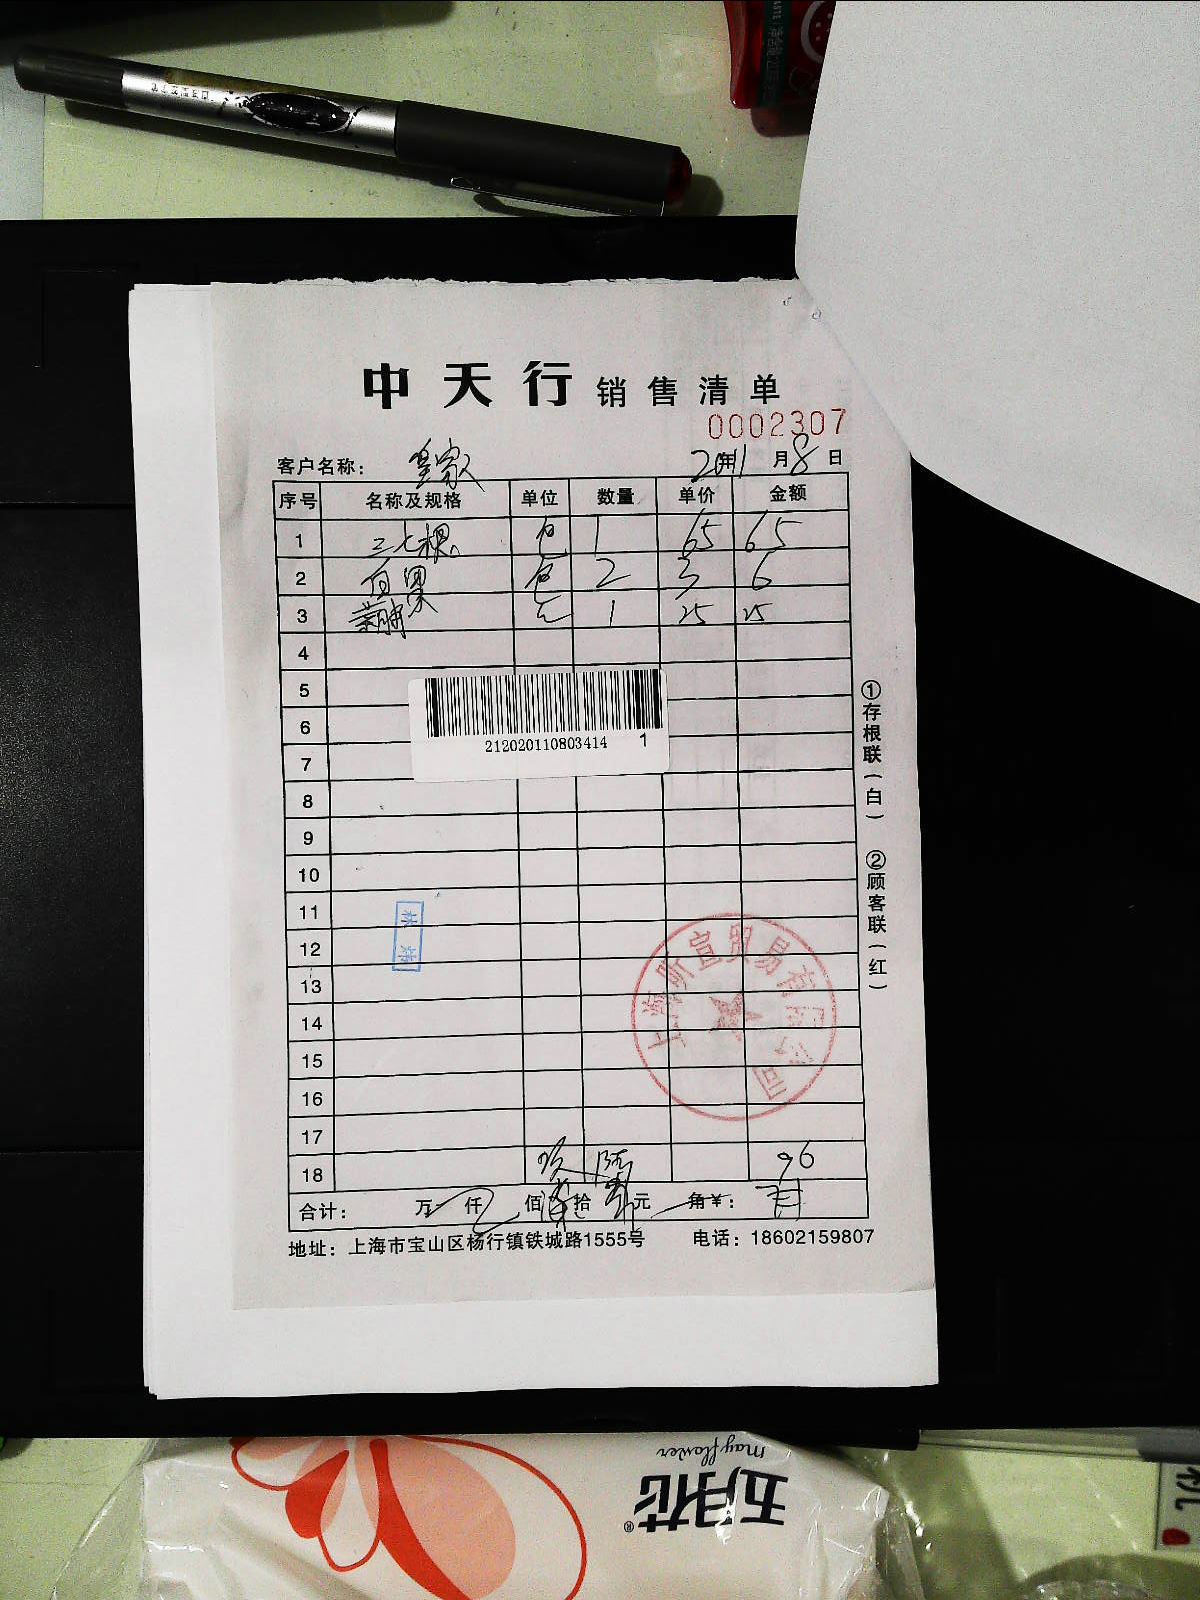 中天行 销售清单
0002307
客户名称: 皇家 20年11月8日
序号 名称及规格 单位 数量 单价 金额
1 三七棵 包 1 65 65
2 白果 包 2 3 6
3 包 1 25 25
4
5
6
7
212020110803414 1
8
9
10
11
12
13
14
15
16
17
18 玖 陆 96
合计: 万 仟 佰 拾 元 角 ¥:
地址: 上海市宝山区杨行镇铁城路1555号 电话: 18602159807
①存根联(白) ②顾客联(红)
上海昕宣贸易有限公司
五月花
mayflower